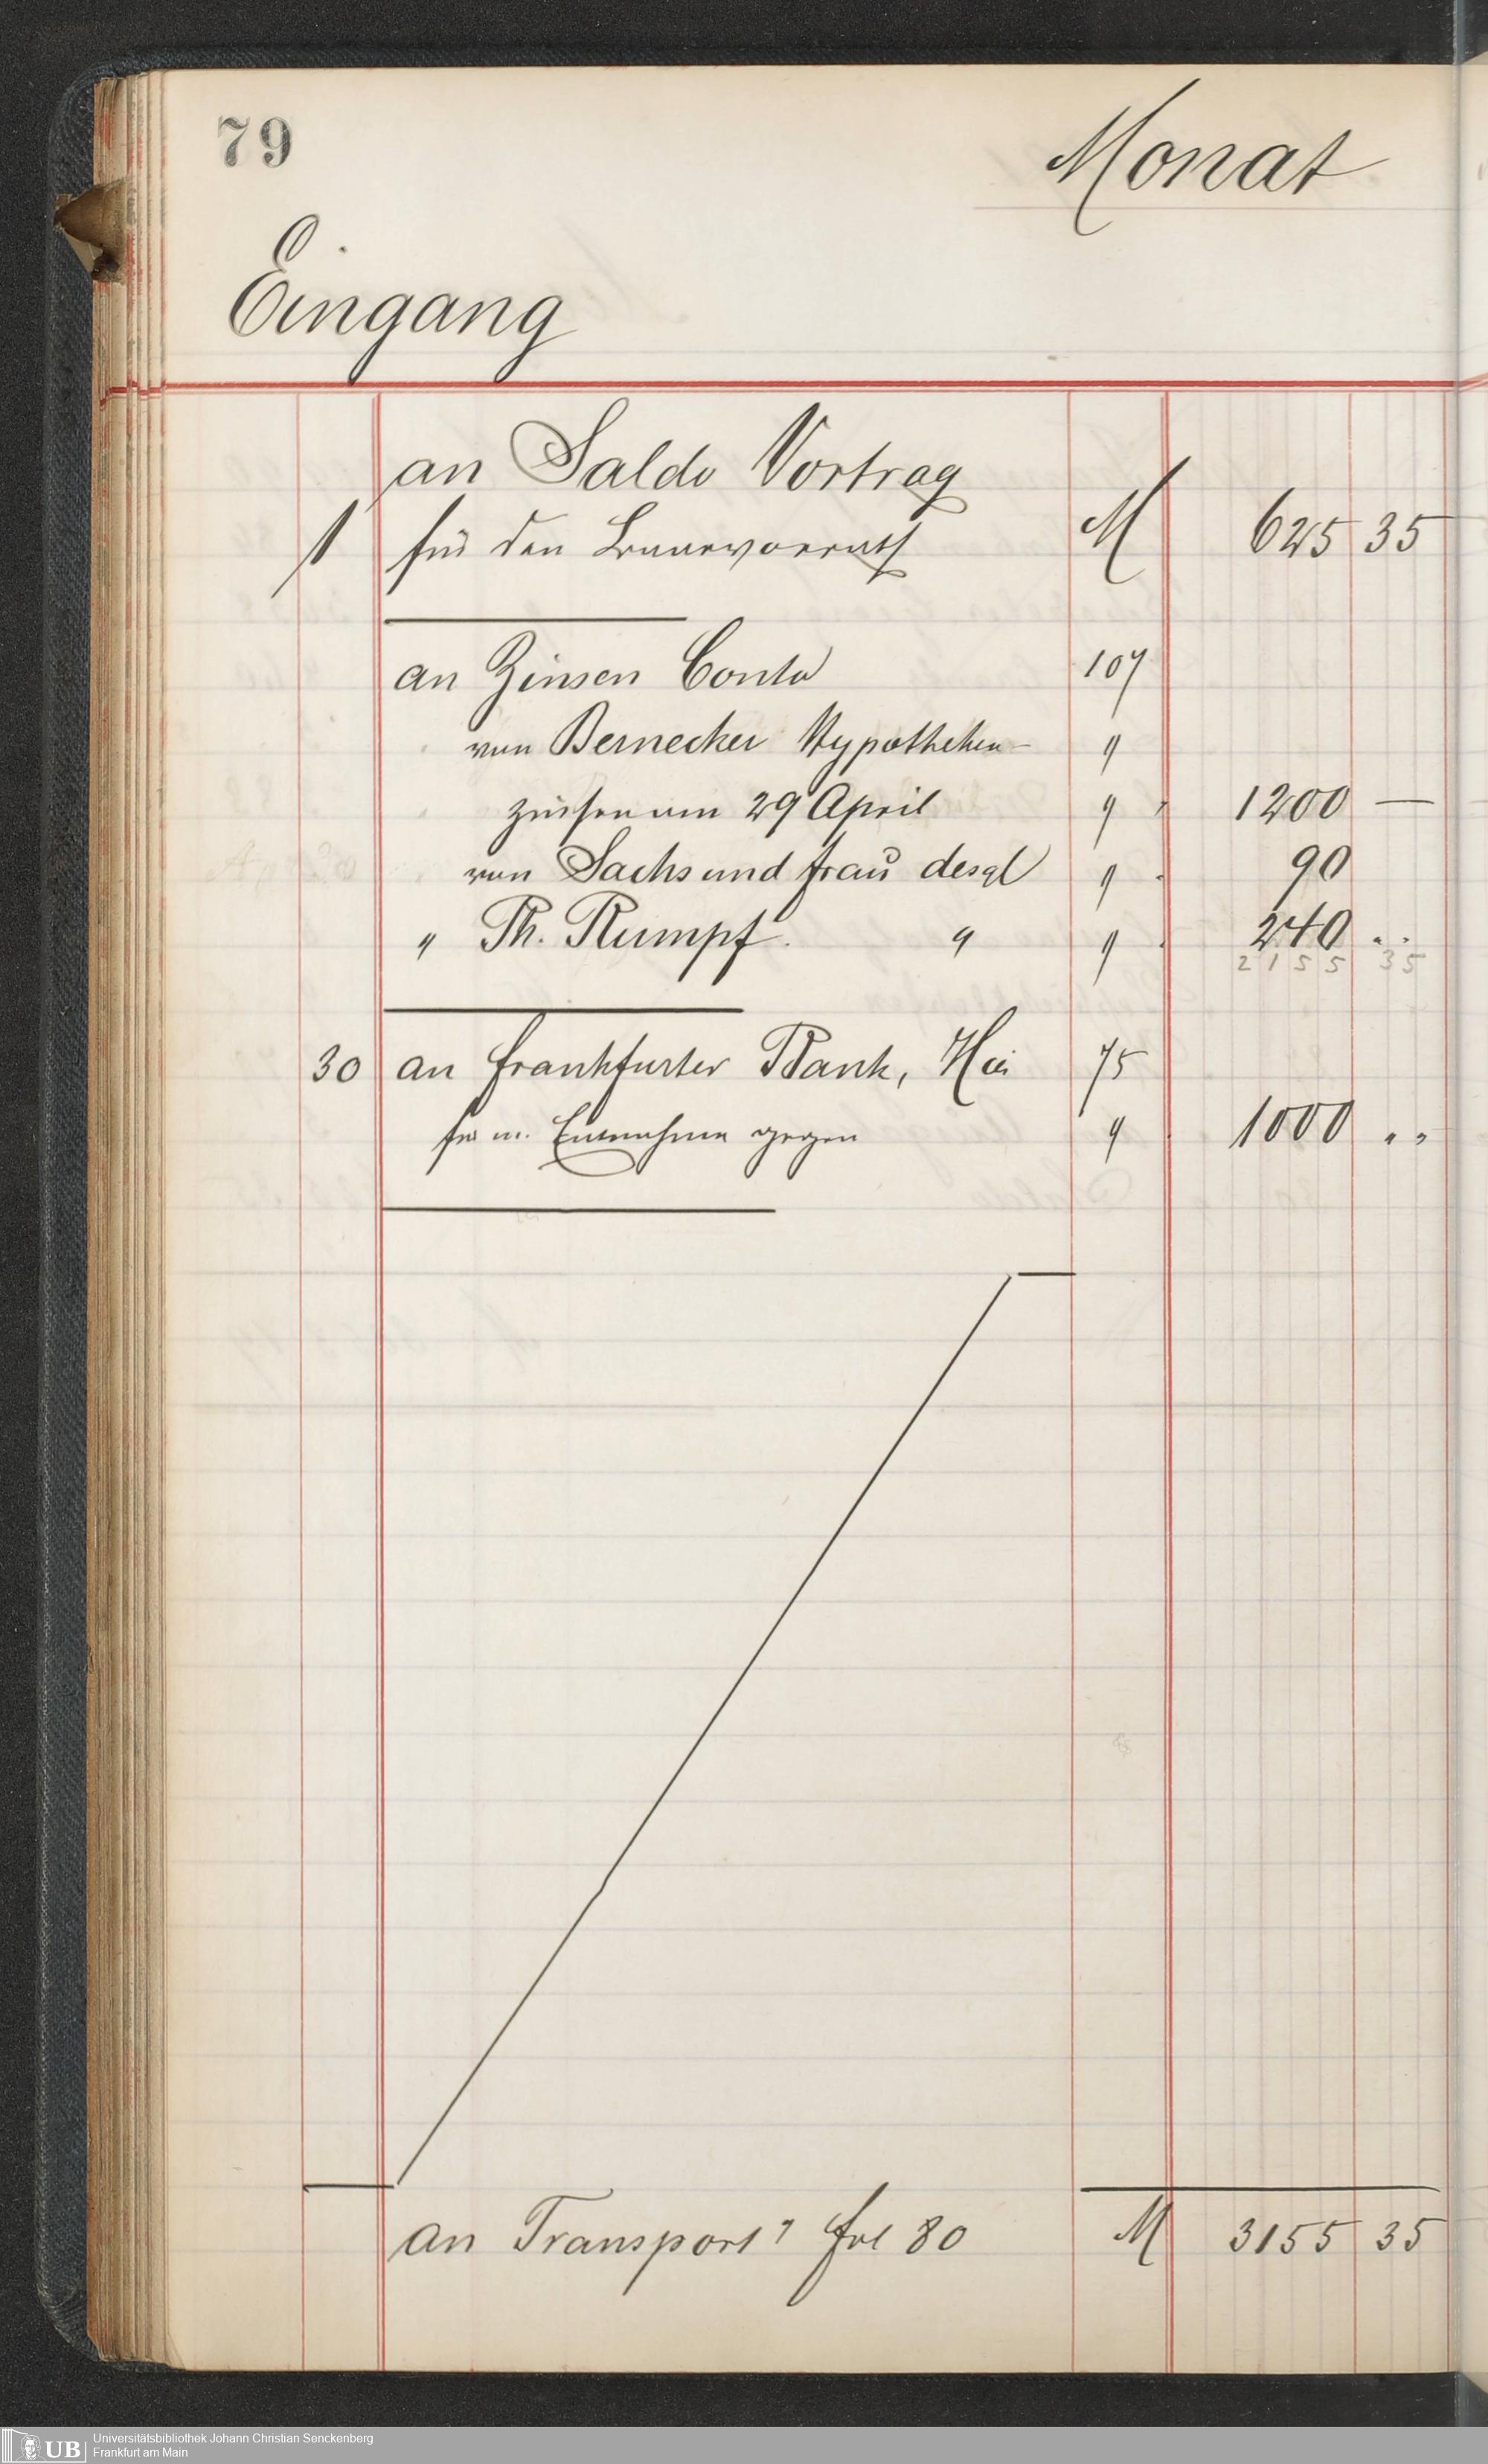 79
Monat
Eingang
an Saldo Vortrag
1 für den Baarvorrath M 625 35
an Zinsen Conto 107
von Bernecker Hypotheken- "
zinsen um 29 April " " 1200 —
von Sachs und Frau desgl " " 90
" Th. Rumpf. " " " 240 ..
2155 35
30 an Frankfurter Bank, Hier 75
für m. Entnahme gegen " 1000 ..
an Transport fol 80 M 3155 35
UB Universitätsbibliothek Johann Christian Senckenberg
Frankfurt am Main